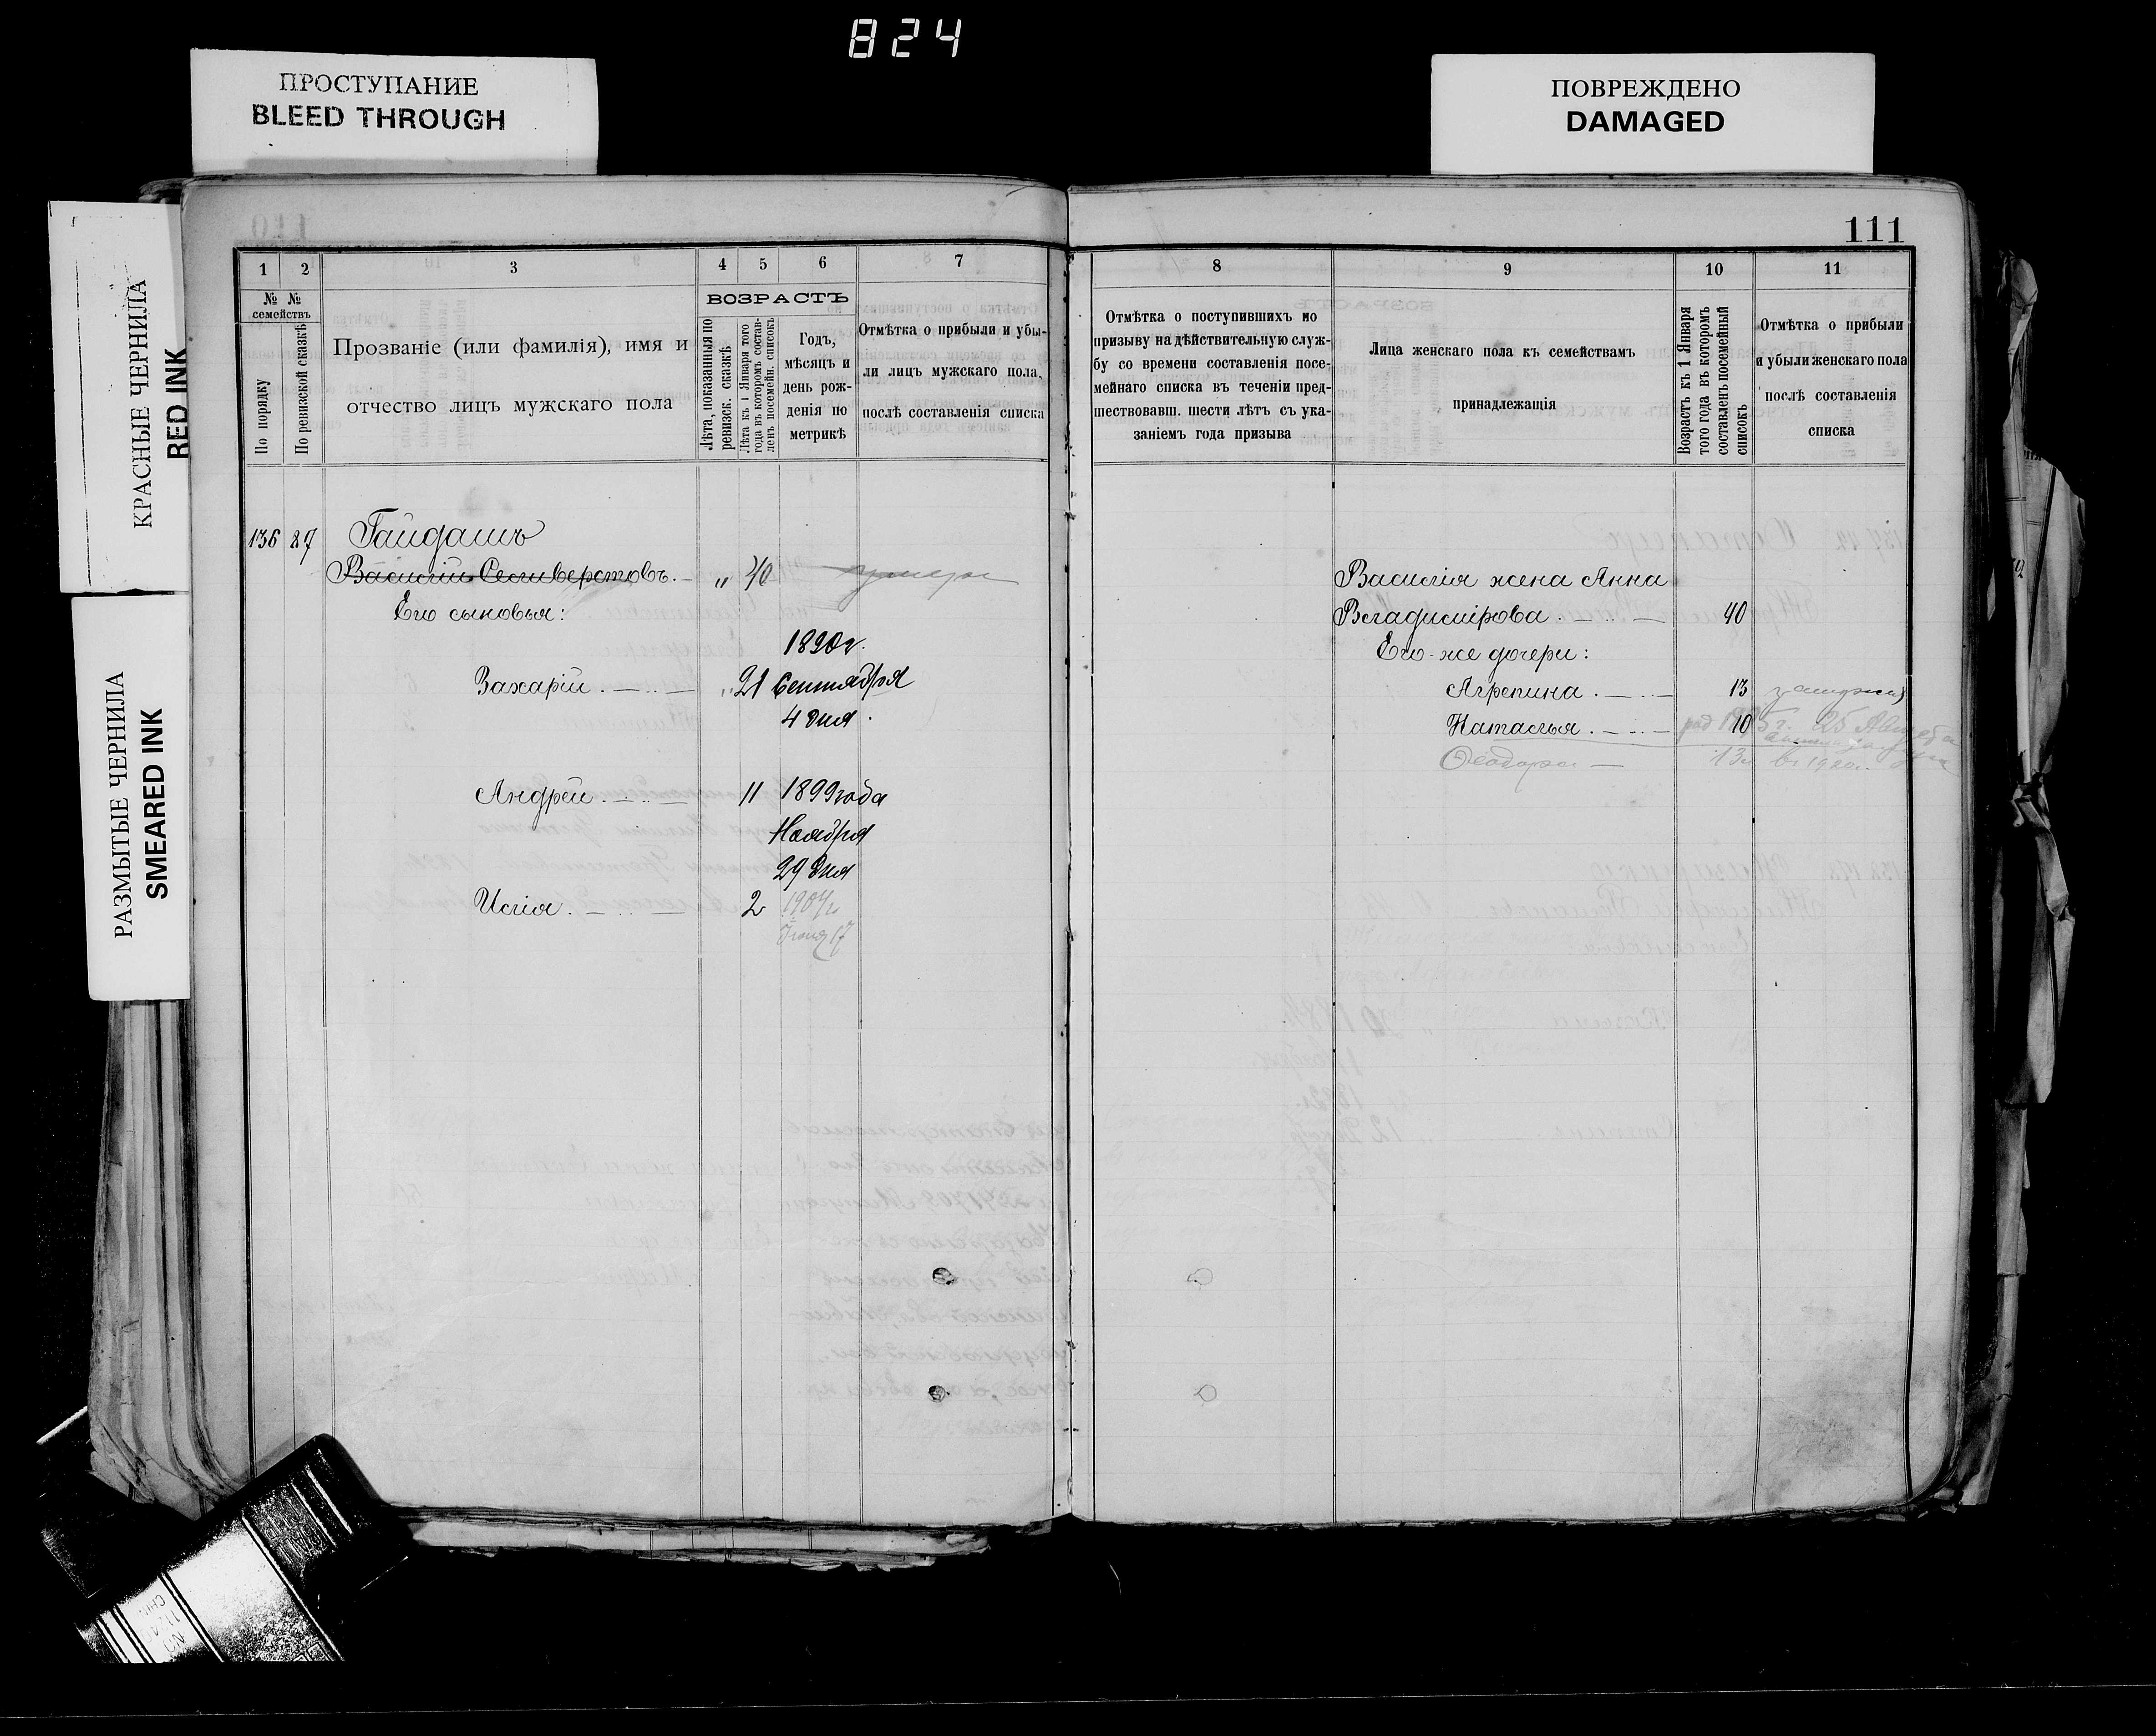 824
ПРОСТУПАНИЕ
BLEED THROUGH
ПОВРЕЖДЕНО
DAMAGED
КРАСНЫЕ ЧЕРНИЛА
RED INK
РАЗМЫТЫЕ ЧЕРНИЛА
SMEARED INK
111
1 2 3 4 5 6 7
№ №
семействъ
По порядку
По ревизской сказкѣ
Прозваніе (или фамилія), имя и
отчество лицъ мужскаго пола
ВОЗРАСТЪ
Лѣта, показанныя по
ревизск. сказкѣ
Лѣта къ 1 Января того
года въ которомъ состав-
ленъ посемейн. списокъ
Годъ,
мѣсяцъ и
день рож-
денія по
метрикѣ
Отмѣтка о прибыли и убы-
ли лицъ мужскаго пола,
послѣ составленія списка
136 87 Гайдашъ
Василій Селиверстовъ. „ 40
Его сыновья:
1890г.
Захарій. „ 21 Сентября
4 дня.
Андрей. 11 1899 года
Ноября
29 дня
Илія. 2 1907г
Іюня 17
8 9 10 11
Отмѣтка о поступившихъ по
призыву на дѣйствительную служ-
бу со времени составленія посе-
мейнаго списка въ теченіи пред-
шествовавш. шести лѣтъ съ ука-
заніемъ года призыва
Лица женскаго пола къ семействамъ
принадлежащія
Возрастъ къ 1 Января
того года въ которомъ
составленъ посемейный
списокъ
Отмѣтка о прибыли
и убыли женскаго пола
послѣ составленія
списка
Василія жена Анна
Владимірова. 40
Его-же дочери:
Агрепина. 13 замужемъ
Наталья. 10 25 Августа
Ѳеодора 13 въ 1920г.